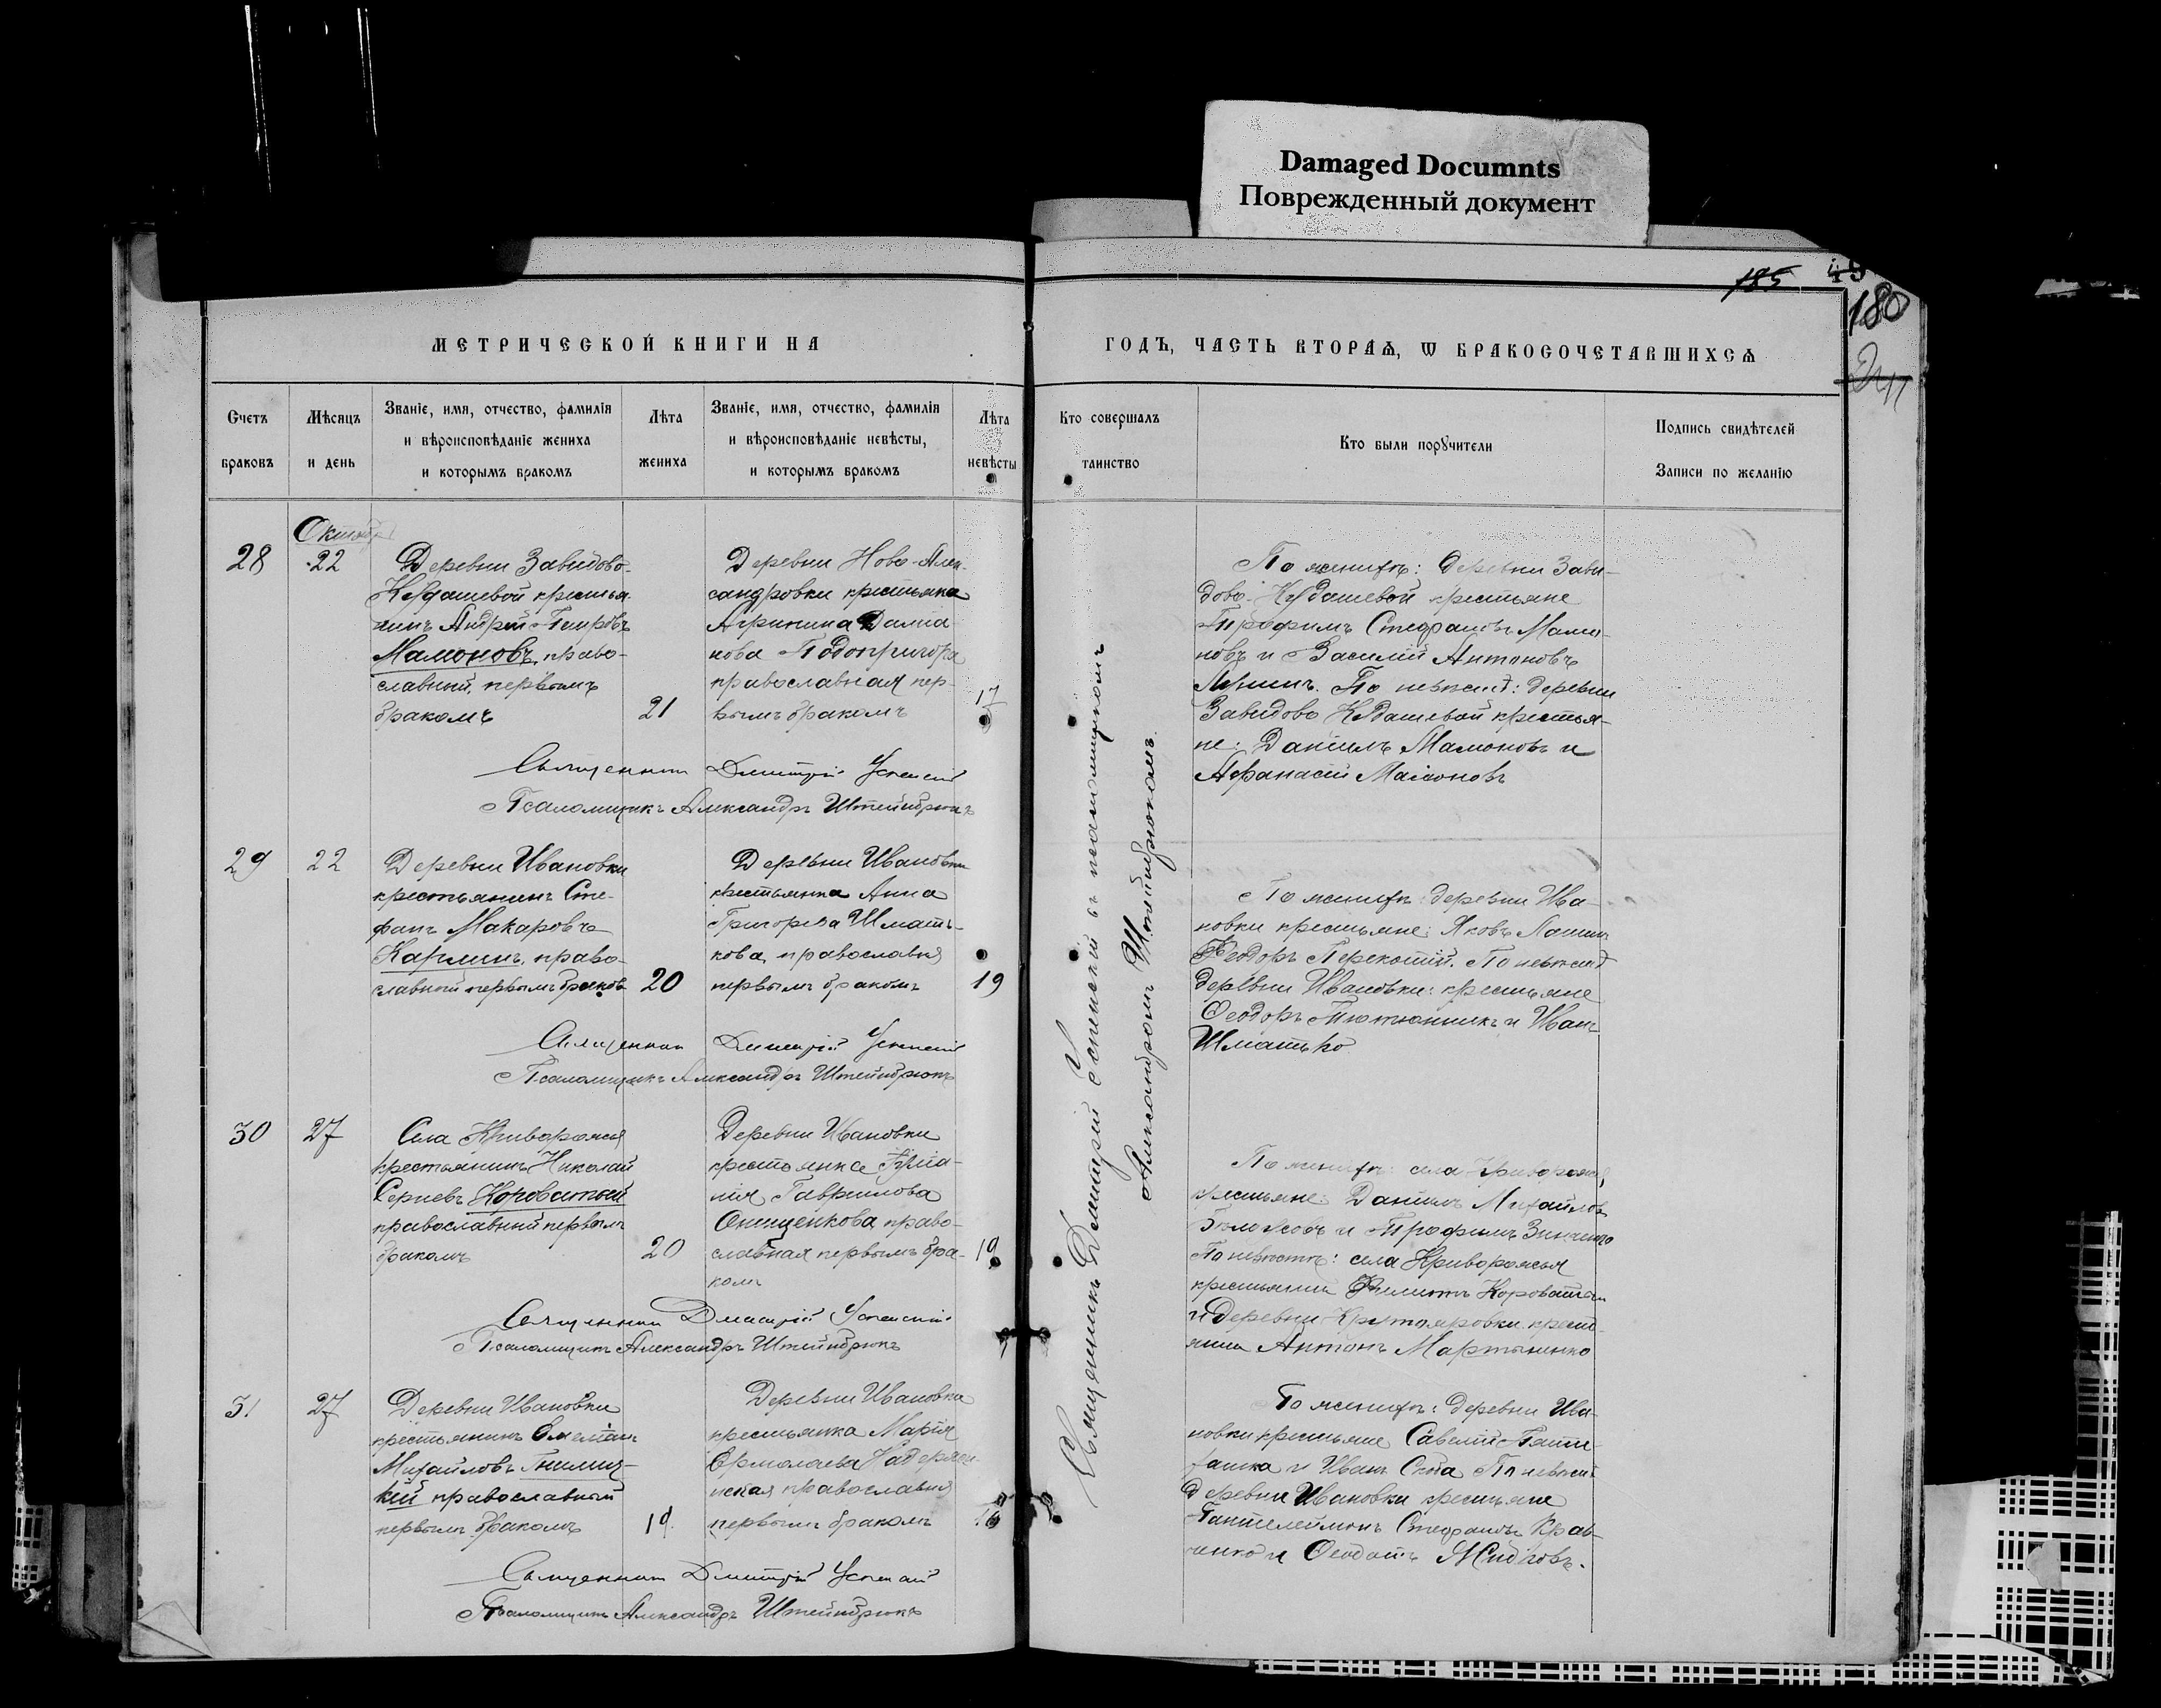 Damaged Documnts
Поврежденный документ
185
49
180
МЕТРИЧЕСКОЙ КНИГИ НА
ГОДЪ, ЧАСТЬ ВТОРАѦ, Ѡ БРАКОСОЧЕТАВШИХСѦ
Счетъ браковъ
Мѣсяцъ и день
Званіе, имя, отчество, фамилія
и вѣроисповѣданіе жениха
и которымъ бракомъ
Лѣта жениха
Званіе, имя, отчество, фамилія
и вѣроисповѣданіе невѣсты,
и которымъ бракомъ
Лѣта невѣсты
Кто совершалъ таинство
Кто были порꙋчители
Подпись свидѣтелей
Записи по желанію
Октября
28
22
Деревни Завидово-
Кудашевой крестья-
нинъ Андрей Петровъ
Мамоновъ, право-
славный, первымъ
бракомъ
21
Деревни Ново-Алек-
сандровки крестьянка
Агрипина Даміа-
нова Подопригора
православная пер-
вымъ бракомъ
17
По женихѣ: деревни Зави-
дово-Кудашевой крестьяне
Трофимъ Стефановъ Мамо-
новъ и Василій Антоновъ
По невѣстѣ: деревни
Завидово Кудашевой крестья-
не: Даніилъ Мамоновъ и
Афанасій Мамоновъ
Священникъ Дмитрій Успенскій
Псаломщикъ Александръ Штейнбрюкъ
29
22
Деревни Ивановки
крестьянинъ Сте-
фанъ Макаровъ
Карлинъ, право-
славный первымъ браком
20
Деревни Ивановки
крестьянка Анна
Григорьева Шмать-
кова, православная
первымъ бракомъ
19
По женихѣ: деревни Ива-
новки крестьяне: Яковъ
Феодоръ По невѣстѣ
деревни Ивановки: крестьяне
Ѳеодоръ Тютюнникъ и Иванъ
Шматько
Священникъ Дмитрій Успенскій
Псаломщикъ Александръ Штейнбрюкъ
30
27
Села Криворожья
крестьянинъ Николай
Сергіевъ Короватый
православный первымъ
бракомъ
20
Деревни Ивановки
крестьянка
Гаврилова
Онищенкова право-
славная первымъ бра-
комъ
19
По женихѣ: села Криворожья
крестьяне: Даніилъ Михайловъ
Бѣлоусовъ и Трофимъ Зинченко
По невѣстѣ: села Криворожья
крестьянинъ Филиппъ Короватый
и деревни Крутояровки крестья-
нинъ Антонъ Мартыненко
Священникъ Дмитрій Успенскій
Псаломщикъ Александръ Штейнбрюкъ
31
27
Деревни Ивановки
крестьянинъ Емеліанъ
Михайловъ Гнилиц-
кій православный
первымъ бракомъ
19
Деревни Ивановки
крестьянка Марія
Ермолаева
православная
первымъ бракомъ
16
По женихѣ: деревни Ива-
новки крестьяне Савелій
и Иванъ По невѣстѣ
деревни Ивановки крестьяне
Пантелеймонъ Стефановъ Крав-
ченко и Ѳеодотъ
Священникъ Дмитрій Успенскій
Псаломщикъ Александръ Штейнбрюкъ
Священникъ Дмитрій Успенскій съ псаломщикомъ
Александромъ Штейнбрюкомъ.